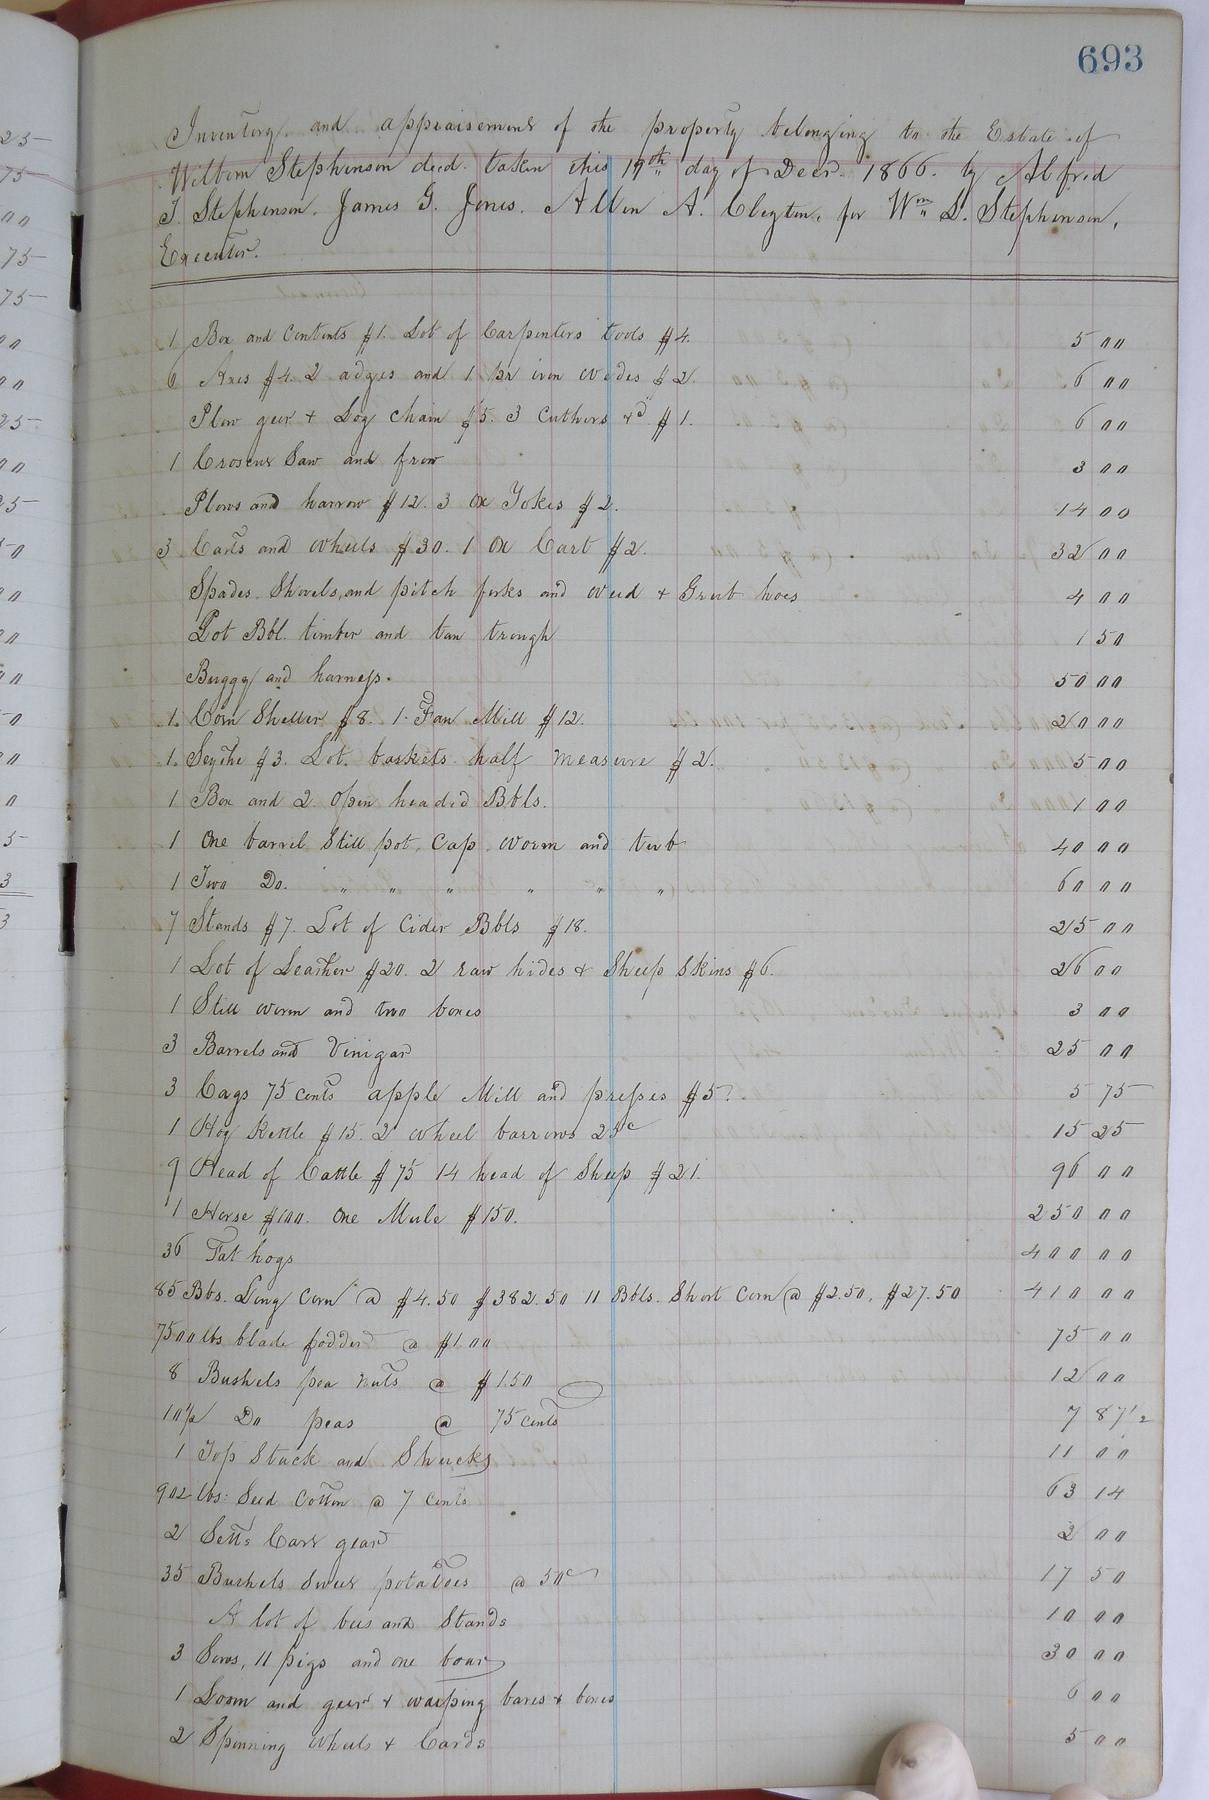 693
Inventory and appraisement of the property belonging to the Estate of
Wilbern Stephenson decd. taken this 17th day of Decr. 1866. by Alfred
J. Stephenson. James G. Jones. Albin A. Clayton, for Wm L. Stephenson,
Executor.
1 Box and contents $1. Lot of Carpenters tools $4. 5 00
6 Axes $4. 2 adges and 1 pr iron wedes $2. 6 00
Plow geer & Log chain $5. 3 Cutters &c $1. 6 00
1 Croscut Saw and frow 3 00
Plows and harrow $12. 3 Ox Yokes $2. 14 00
3 Carts and wheels $30. 1 Ox Cart $2. 32 00
Spades. Shovels, and pitch forks and weed & Grub hoes 4 00
Lot Bbl. timber and tan trough 1 50
Buggy and harness. 50 00
1. Corn Sheller $8. 1 Fan Mill $12. 20 00
1. Scythe $3. Lot. baskets half measure $2. 5 00
1 Box and 2 Open headed Bbls. 1 00
1 One barrel Still pot, Cap. worm and tub 40 00
1 Two Do. " " " " " " 60 00
7 Stands $7. Lot of Cider Bbls $18. 25 00
1 Lot of Leather $20. 2 raw hides & Sheep Skins $6. 26 00
1 Still worm and two boxes 3 00
3 Barrels and Vinigar 25 00
3 Cags 75 cents apple Mill and presses $5. 5 75
1 Hog Kettle $15. 2 wheel barrows 25c 15 25
9 Head of Cattle $75 14 head of Sheep $21. 96 00
1 Horse $100. One Mule $150. 250 00
36 Fat hogs 400 00
85 Bbs. Long Corn @ $4.50 $382.50 11 Bbls. Short Corn @ $2.50. $27.50 410 00
7500 lbs blade fodder @ $1.00 75 00
8 Bushels pea nuts @ $1.50 12 00
10½ Do peas @ 75 cents 7 87½
1 Top Stack and Shucks 11 00
902 lbs. Seed Cotton @ 7 cents 63 14
2 Setts Cart gear 2 00
35 Bushels Sweet potatoes @ 50c 17 50
A lot of bees and Stands 10 00
3 Sows, 11 pigs and one boar 30 00
1 Loom and geer & warping bares & boxes 6 00
2 Spinning wheels & Cards 5 00